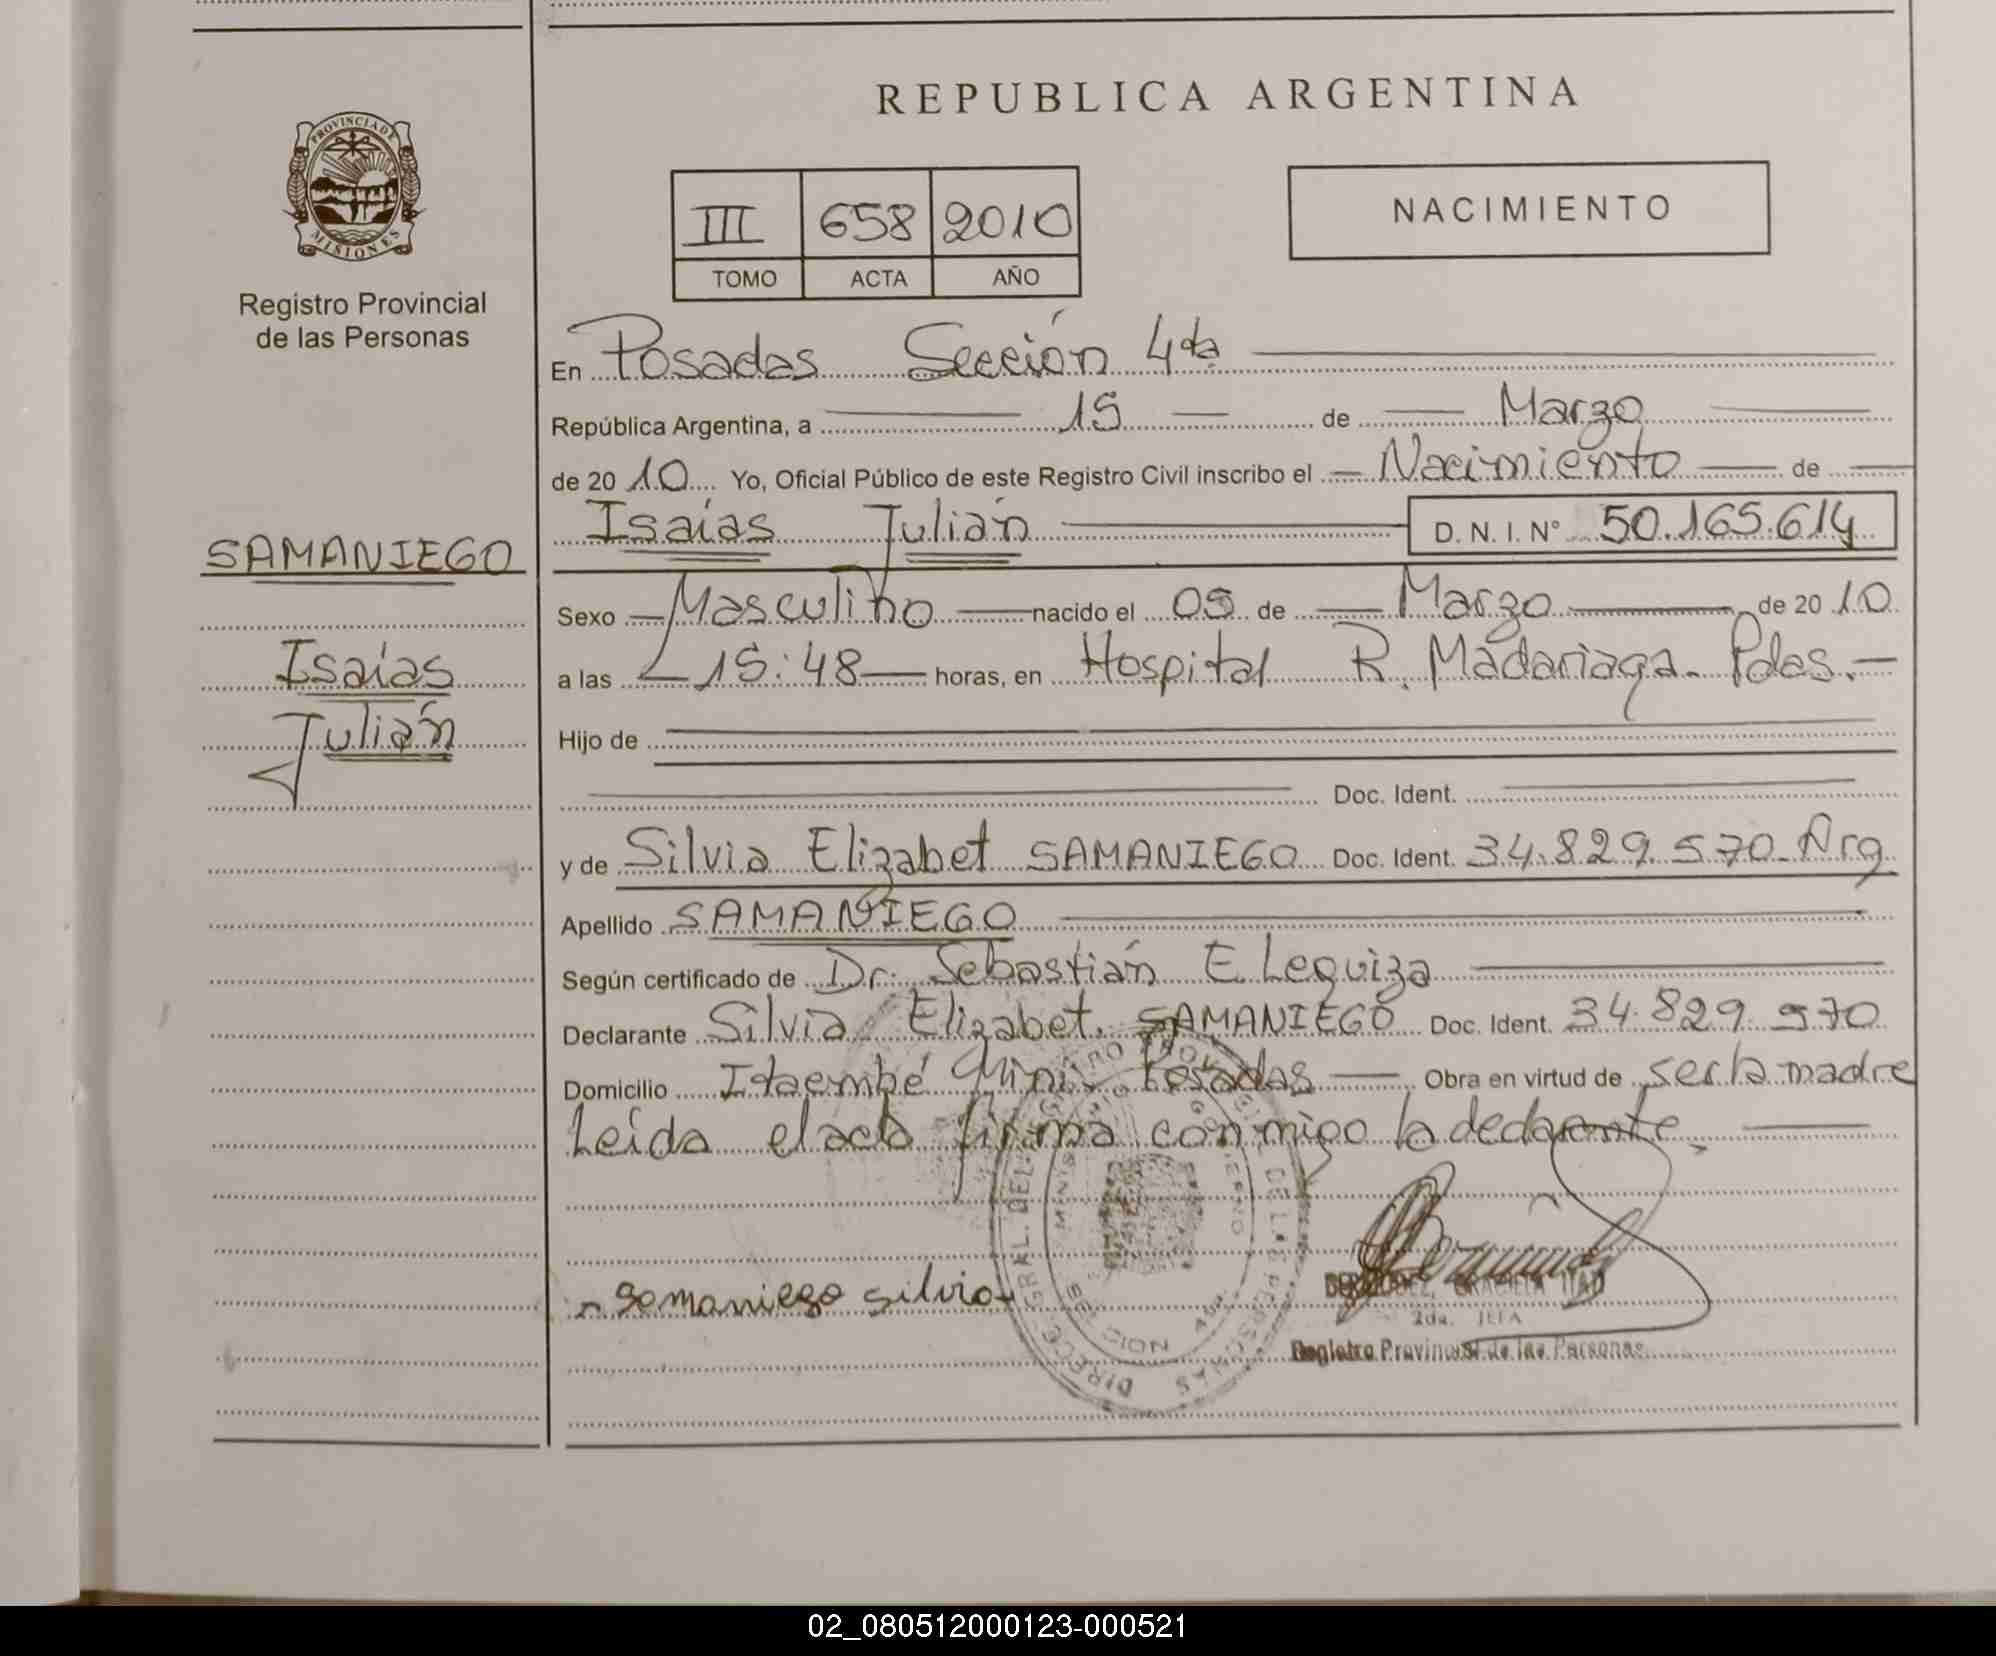 REPUBLICA ARGENTINA
PROVINCIA DE
MISIONES
Registro Provincial
de las Personas
III 658 2010
TOMO ACTA AÑO
NACIMIENTO
En Posadas Sección 4ta
República Argentina, a 15 de Marzo
de 2010 Yo, Oficial Público de este Registro Civil inscribo el Nacimiento de
Isaías Julián D. N. I. Nº 50.165.614
SAMANIEGO
Isaías
Julián
Sexo Masculino nacido el 05 de Marzo de 2010
a las 15:48 horas, en Hospital R. Madariaga. Pdas.
Hijo de
Doc. Ident.
y de Silvia Elizabet SAMANIEGO Doc. Ident. 34.829.570 Arg
Apellido SAMANIEGO
Según certificado de Dr. Sebastián E Leguiza
Declarante Silvia Elizabet SAMANIEGO Doc. Ident. 34.829.570
Domicilio Itaembé Miní Posadas Obra en virtud de ser la madre
Leída el acta firma conmigo la declarante.
Samaniego Silvia
GRACIELA
2da. JEFA
Registro Provincial de las Personas
02_080512000123-000521